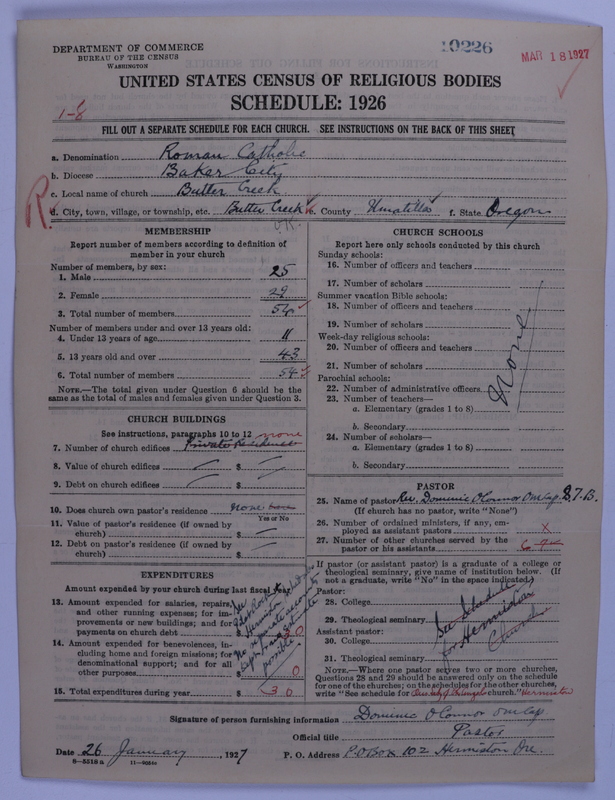 DEPARTMENT OF COMMERCE
BUREAU OF THE CENSUS
WASHINGTON
19226
MAR 18 1927
UNITED STATES CENSUS OF RELIGIOUS BODIES
SCHEDULE: 1926
1-8
FILL OUT A SEPARATE SCHEDULE FOR EACH CHURCH. SEE INSTRUCTIONS ON THE BACK OF THIS SHEET
a. Denomination Roman Catholic
b. Diocese Baker City
c. Local name of church Butter Creek
R.
d. City, town, village, or township, etc. Butter Creek e. County Umatilla f. State Oregon
MEMBERSHIP
Report number of members according to definition of
member in your church
Number of members, by sex:
1. Male 25
2. Female 29
3. Total number of members 54
Number of members under and over 13 years old:
4. Under 13 years of age 11
5. 13 years old and over 43
6. Total number of members 54
NOTE.—The total given under Question 6 should be the
same as the total of males and females given under Question 3.
CHURCH BUILDINGS
See instructions, paragraphs 10 to 12 none
7. Number of church edifices Private Residence
8. Value of church edifices $
9. Debt on church edifices $
10. Does church own pastor's residence none
Yes or No
11. Value of pastor's residence (if owned by
church) $
12. Debt on pastor's residence (if owned by
church) $
EXPENDITURES
Amount expended by your church during last fiscal year
13. Amount expended for salaries, repairs,
and other running expenses; for im-
provements or new buildings; and for
payments on church debt $ 30
14. Amount expended for benevolences, in-
cluding home and foreign missions; for
denominational support; and for all
other purposes $ 0
15. Total expenditures during year $ 30
CHURCH SCHOOLS
Report here only schools conducted by this church
Sunday schools:
16. Number of officers and teachers
17. Number of scholars
Summer vacation Bible schools:
18. Number of officers and teachers
19. Number of scholars
Week-day religious schools:
20. Number of officers and teachers
21. Number of scholars
Parochial schools:
22. Number of administrative officers
23. Number of teachers—
a. Elementary (grades 1 to 8)
b. Secondary
24. Number of scholars—
a. Elementary (grades 1 to 8)
b. Secondary
None
PASTOR
25. Name of pastor Rev. Dominic O'Connor OM Cap
(If church has no pastor, write "None")
26. Number of ordained ministers, if any, em-
ployed as assistant pastors x
27. Number of other churches served by the
pastor or his assistants
If pastor (or assistant pastor) is a graduate of a college or
theological seminary, give name of institution below. (If
not a graduate, write "No" in the space indicated.)
Pastor:
28. College
29. Theological seminary
Assistant pastor:
30. College
31. Theological seminary
See Schedule
for Hermiston
Church
NOTE.—Where one pastor serves two or more churches,
Questions 28 and 29 should be answered only on the schedule
for one of the churches; on the schedules for the other churches,
write "See schedule for Our Lady of Angels church." Hermiston
Signature of person furnishing information Dominic O'Connor OM Cap
Official title Pastor
Date 26 January, 1927 P. O. Address P.O Box 102 Hermiston Ore.
8—5518 a